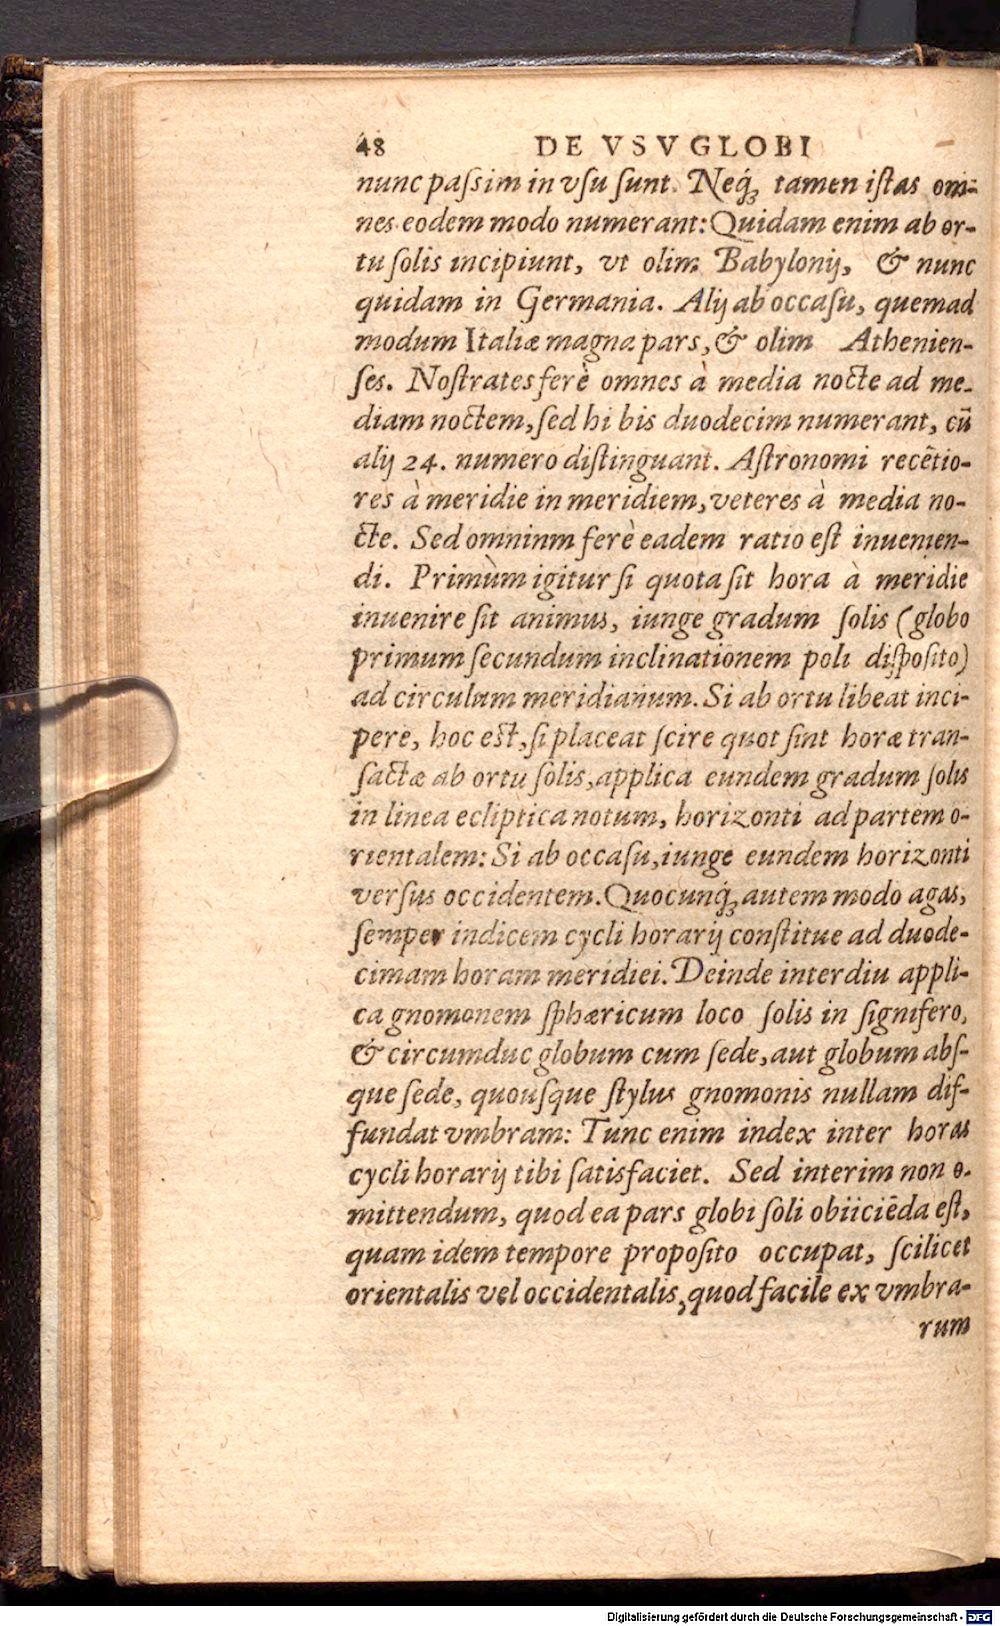 48 DE VSV GLOBI
nunc paſsim in vſu ſunt. Neq́ꝫ tamen iſtas om-
nes eodem modo numerant: Quidam enim ab or-
tu ſolis incipiunt, vt olim Babylonij, & nunc
quidam in Germania. Alij ab occaſu, quemad
modum Italiæ magna pars, & olim Athenien-
ſes. Noſtrates ferè omnes à media nocte ad me-
diam noctem, ſed hi bis duodecim numerant, cū
alij 24. numero diſtinguant. Aſtronomi recētio-
res à meridie in meridiem, veteres à media no-
cte. Sed omninm ferè eadem ratio eſt inuenien-
di. Primùm igitur ſi quota ſit hora à meridie
inuenire ſit animus, iunge gradum ſolis (globo
primum ſecundum inclinationem poli diſpoſito)
ad circulum meridianum. Si ab ortu libeat inci-
pere, hoc eſt, ſi placeat ſcire quot ſint horæ tran-
ſactæ ab ortu ſolis, applica eundem gradum ſolis
in linea ecliptica notum, horizonti ad partem o-
rientalem: Si ab occaſu, iunge eundem horizonti
verſus occidentem. Quocunq́ꝫ autem modo agas,
ſemper indicem cycli horarij conſtitue ad duode-
cimam horam meridiei. Deinde interdiu appli-
ca gnomonem ſphæricum loco ſolis in ſignifero,
& circumduc globum cum ſede, aut globum abſ-
que ſede, quouſque ſtylus gnomonis nullam dif-
fundat vmbram: Tunc enim index inter horas
cycli horarij tibi ſatisfaciet. Sed interim non o-
mittendum, quod ea pars globi ſoli obiiciēda eſt,
quam idem tempore propoſito occupat, ſcilicet
orientalis vel occidentalis, quod facile ex vmbra-
rum
Digitalisierung gefördert durch die Deutsche Forschungsgemeinschaft - DFG